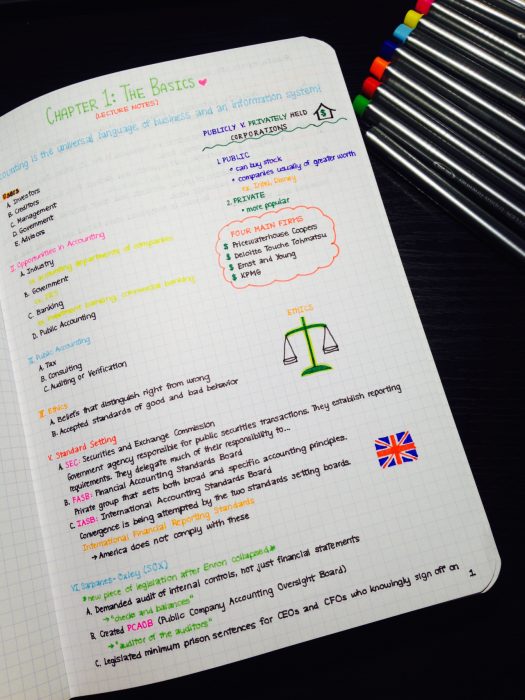 CHAPTER 1: THE BASICS
(LECTURE NOTES)
counting is the universal language of business and an information system!
Users
A. Investors
B. Creditors
C. Management
D. Government
E. Advisors
II. Opportunities in Accounting
A. Industry
ex. accounting departments of companies
B. Government
C. Banking
ex. investment banking, commercial banking
D. Public Accounting
III. Public Accounting
A. Tax
B. Consulting
C. Auditing or Verification
PUBLICLY V. PRIVATELY HELD
CORPORATIONS
$
1. PUBLIC
* can buy stock
* companies usually of greater worth
ex. Intel, Disney
2. PRIVATE
* more popular
FOUR MAIN FIRMS
$ Pricewaterhouse Coopers
$ Deloitte Touche Tohmatsu
$ Ernst and Young
$ KPMG
ETHICS
IV. Ethics
A. Beliefs that distinguish right from wrong
B. Accepted standards of good and bad behavior
V. Standard Setting
A. SEC: Securities and Exchange Commission
Government agency responsible for public securities transactions. They establish reporting
requirements. They delegate much of their responsibility to...
B. FASB: Financial Accounting Standards Board
Private group that sets both broad and specific accounting principles.
C. IASB: International Accounting Standards Board
Convergence is being attempted by the two standards setting boards.
International Financial Reporting Standards
→ America does not comply with these
VI. Sarbanes-Oxley (SOX)
*new piece of legislation after Enron collapsed*
A. Demanded audit of internal controls, not just financial statements
→ "checks and balances"
B. Created PCAOB (Public Company Accounting Oversight Board)
→ "auditor of the auditors"
C. Legislated minimum prison sentences for CEOs and CFOs who knowingly sign off on
1